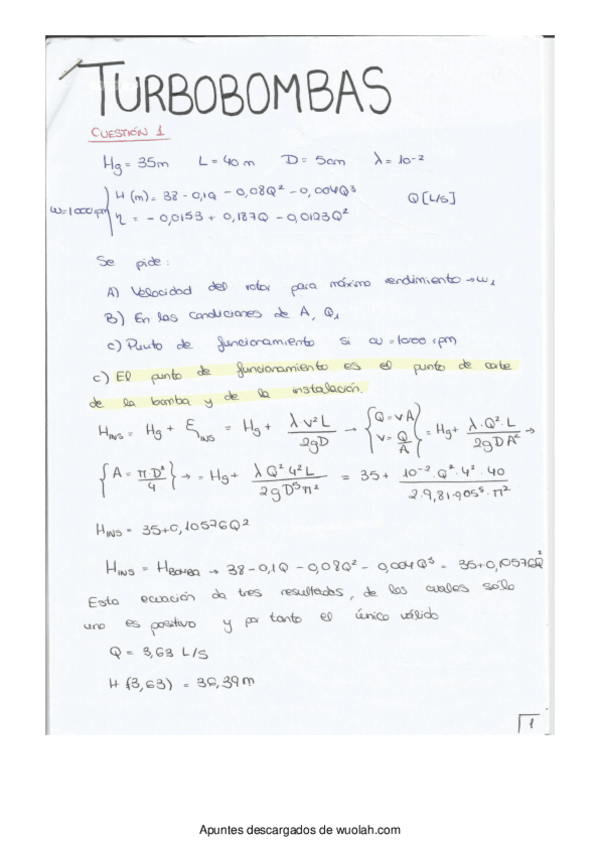 TURBOBOMBAS
CUESTIÓN 1
Hg = 35m L = 40 m D = 5cm λ = 10⁻²
ω=1000rpm { H (m) = 38 - 0,1Q - 0,08Q² - 0,004Q³ Q [L/s]
η = - 0,0153 + 0,187Q - 0,0123Q²
Se pide:
A) Velocidad del rotor para máximo rendimiento → ω₁
B) En las condiciones de A, Q₁
c) Punto de funcionamiento si ω = 1000 rpm
c) El punto de funcionamiento es el punto de corte
de la bomba y de la instalación.
H_INS = Hg + ξ_INS = Hg + λ v² L / 2gD → { Q = vA v = Q/A } = Hg + λ·Q²·L / 2gDA² →
{ A = π·D² / 4 } → = Hg + λ Q² 4² L / 2gD⁵π² = 35 + 10⁻²·Q²·4²·40 / 2·9,81·0,05⁵·π²
H_INS = 35+0,10576Q²
H_INS = H_BOMBA → 38 - 0,1Q - 0,08Q² - 0,004Q³ = 35+0,10576Q²
Esta ecuación da tres resultados, de los cuales sólo
uno es positivo y por tanto el único válido
Q = 3,63 L/s
H (3,63) = 36,39m
1
Apuntes descargados de wuolah.com